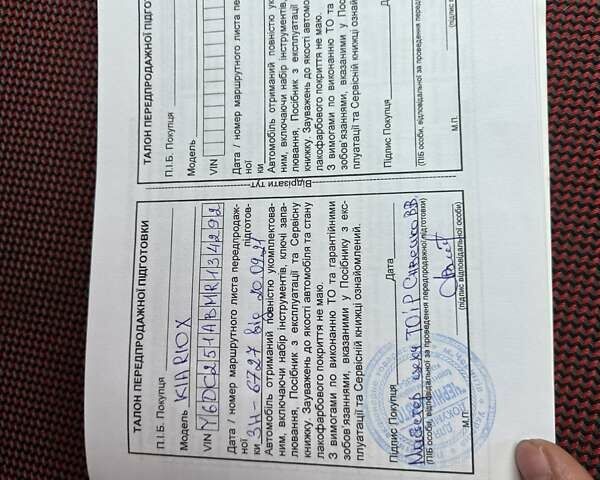 ТАЛОН ПЕРЕДПРОДАЖНОЇ ПІДГОТОВКИ
П.І.Б. Покупця
Модель KIA RIO X
VIN Y6DC251ABMR134292
Дата / номер маршрутного листа передпродаж-
ної підготов-
ки ЗН-6727 від 20.09.21
Автомобіль отриманий повністю укомплектова-
ним, включаючи набір інструментів, ключі запа-
лювання, Посібник з експлуатації та Сервісну
книжку. Зауважень до якості автомобіля та стану
лакофарбового покриття не маю.
З вимогами по виконанню ТО та гарантійними
зобов'язаннями, вказаними у Посібнику з екс-
плуатації та Сервісній книжці ознайомлений.
Підпис Покупця Дата
Майстер цеху ТОіР
(ПІБ особи, відповідальної за проведення передпродажної підготовки)
М.П. (підпис відповідальної особи)
Відрізати тут
ТАЛОН ПЕРЕДПРОДАЖНОЇ ПІДГОТО
П.І.Б. Покупця
Модель
VIN
Дата / номер маршрутного листа пе
ної
ки
Автомобіль отриманий повністю ук
ним, включаючи набір інструментів,
лювання, Посібник з експлуатації
книжку. Зауважень до якості автомо
лакофарбового покриття не маю.
З вимогами по виконанню ТО та
зобов'язаннями, вказаними у Пос
плуатації та Сервісній книжці ознай
Підпис Покупця Д
(ПІБ особи, відповідальної за проведення передп
М.П. (підпис